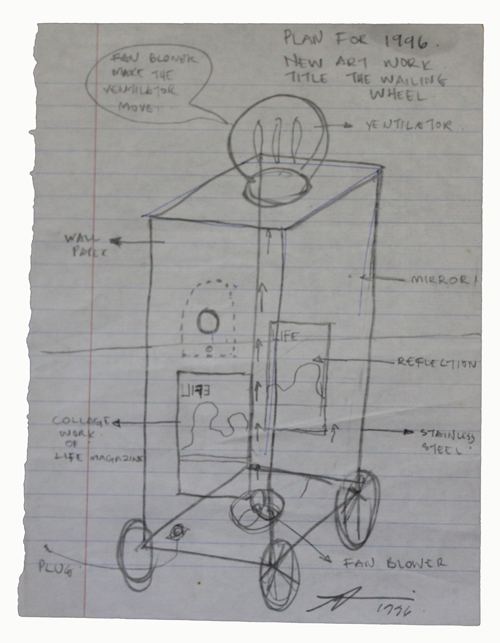 PLAN FOR 1996.
NEW ART WORK
TITLE THE WAILING
WHEEL
FAN BLOWER
MAKE THE
VENTILATOR
MOVE!
VENTILATOR
WALL
PAPER
MIRROR
LIFE
REFLECTION
LIFE
COLLAGE
WORK
OF
LIFE MAGAZINE
STAINLESS
STEEL
PLUG
FAN BLOWER
1996